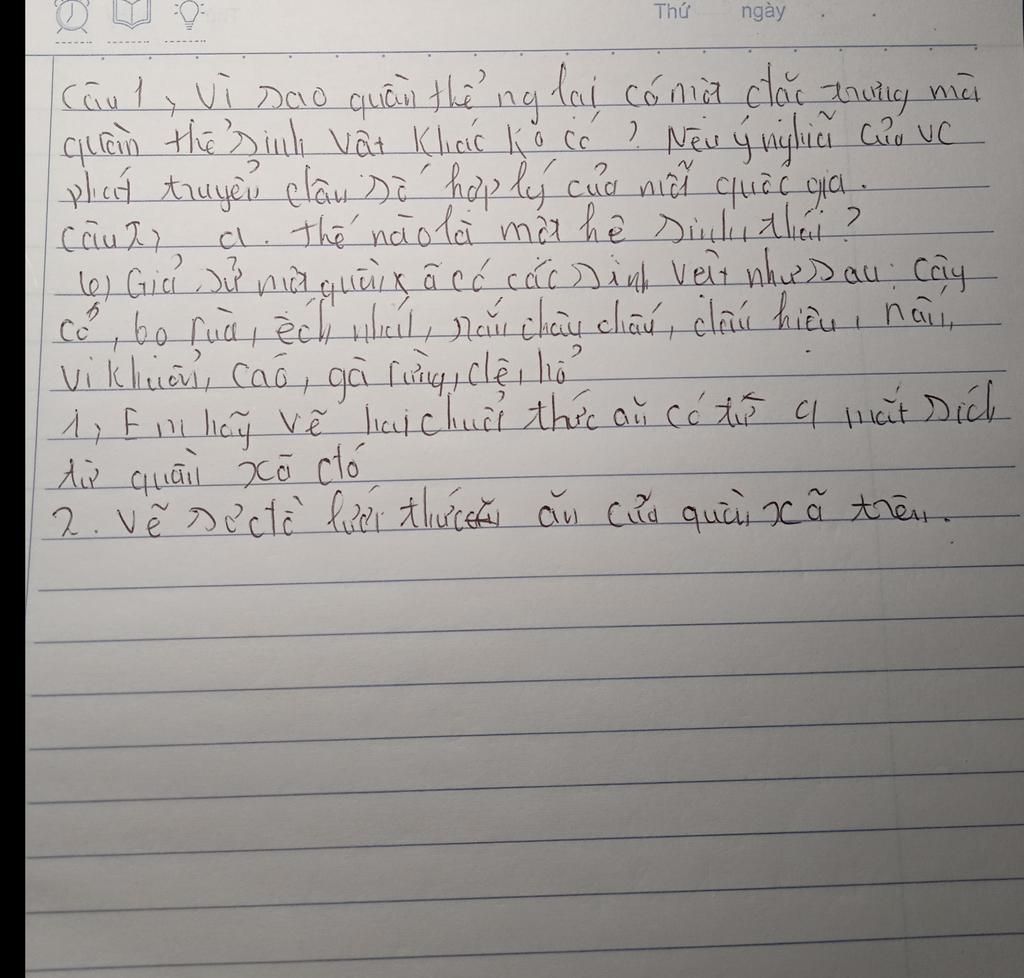 Thứ ngày . .
Câu 1, Vì sao quần thể ng lại có một đặc trưng mà
quần thể sinh vật khác ko có ? Nêu ý nghĩa của vc
phát truyển dân số hợp lý của mỗi quốc gia.
Câu 2, a. thế nào là một hệ sinh thái ?
b) Giả sử một quần xã có các sinh vật như sau: Cây
cỏ, bọ rùa, ếch nhái, rắn, châu chấu, diều hiêu, nấm,
vi khuẩn, cáo, gà rừng, dê, hổ
1, Em hãy vẽ hai chuỗi thức ăn có từ 4 mắt xích
từ quần xã đó
2. Vẽ sơ đồ lưới thức ăn của quần xã trên.